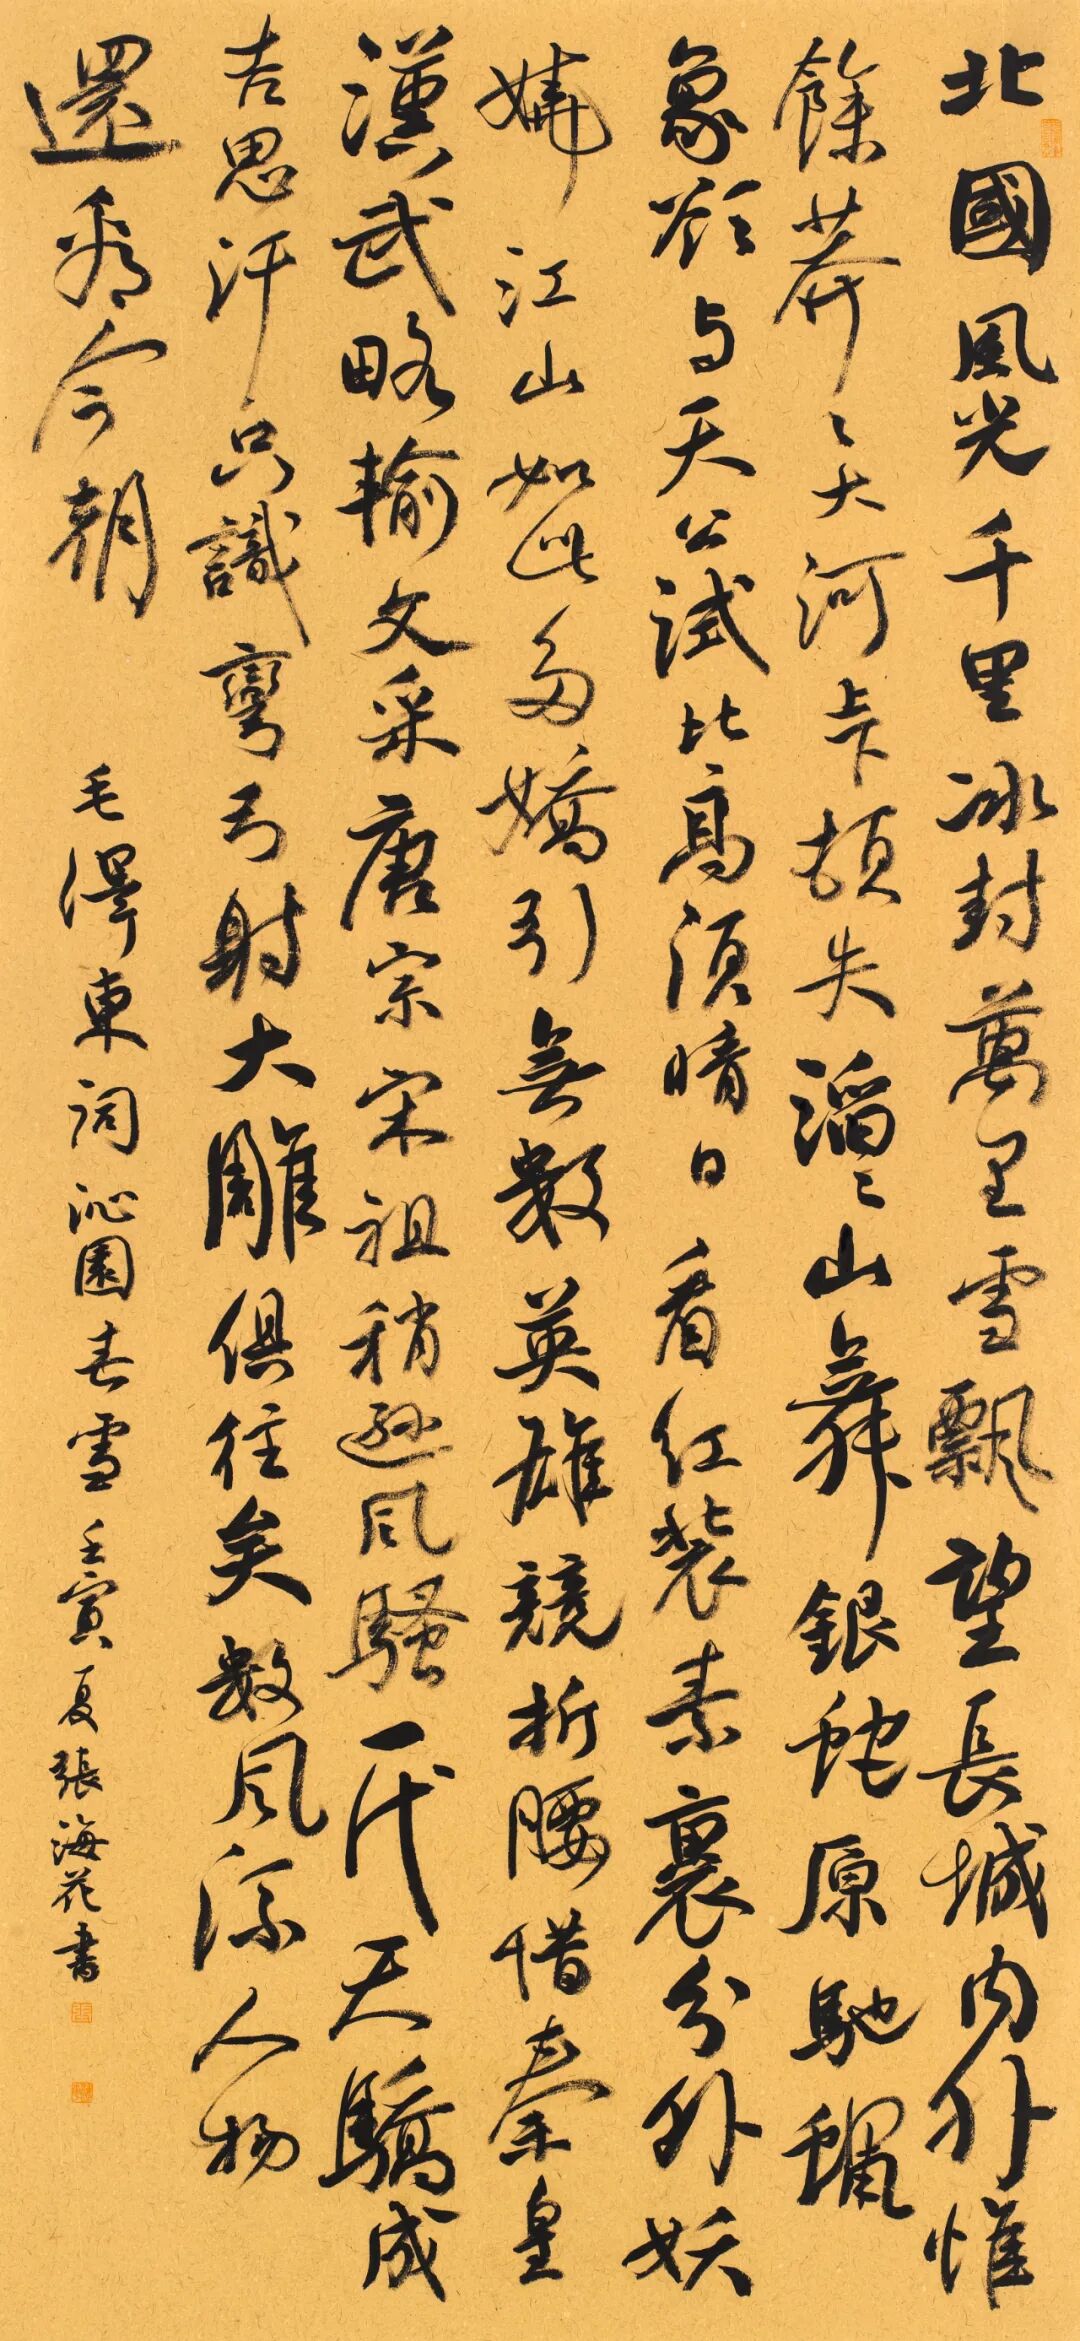 北國風光千里冰封萬里雪飄望長城内外惟
餘莽々大河上下頓失滔々山舞銀蛇原馳蠟
象欲与天公試比高須晴日看红裝素裹分外妖
嬈江山如此多嬌引無數英雄競折腰惜秦皇
漢武略輸文采唐宗宋祖稍遜风騷一代天驕成
吉思汗只識彎弓射大雕俱往矣數风流人物
還看今朝
毛澤東詞沁園春雪壬寅夏張海花書